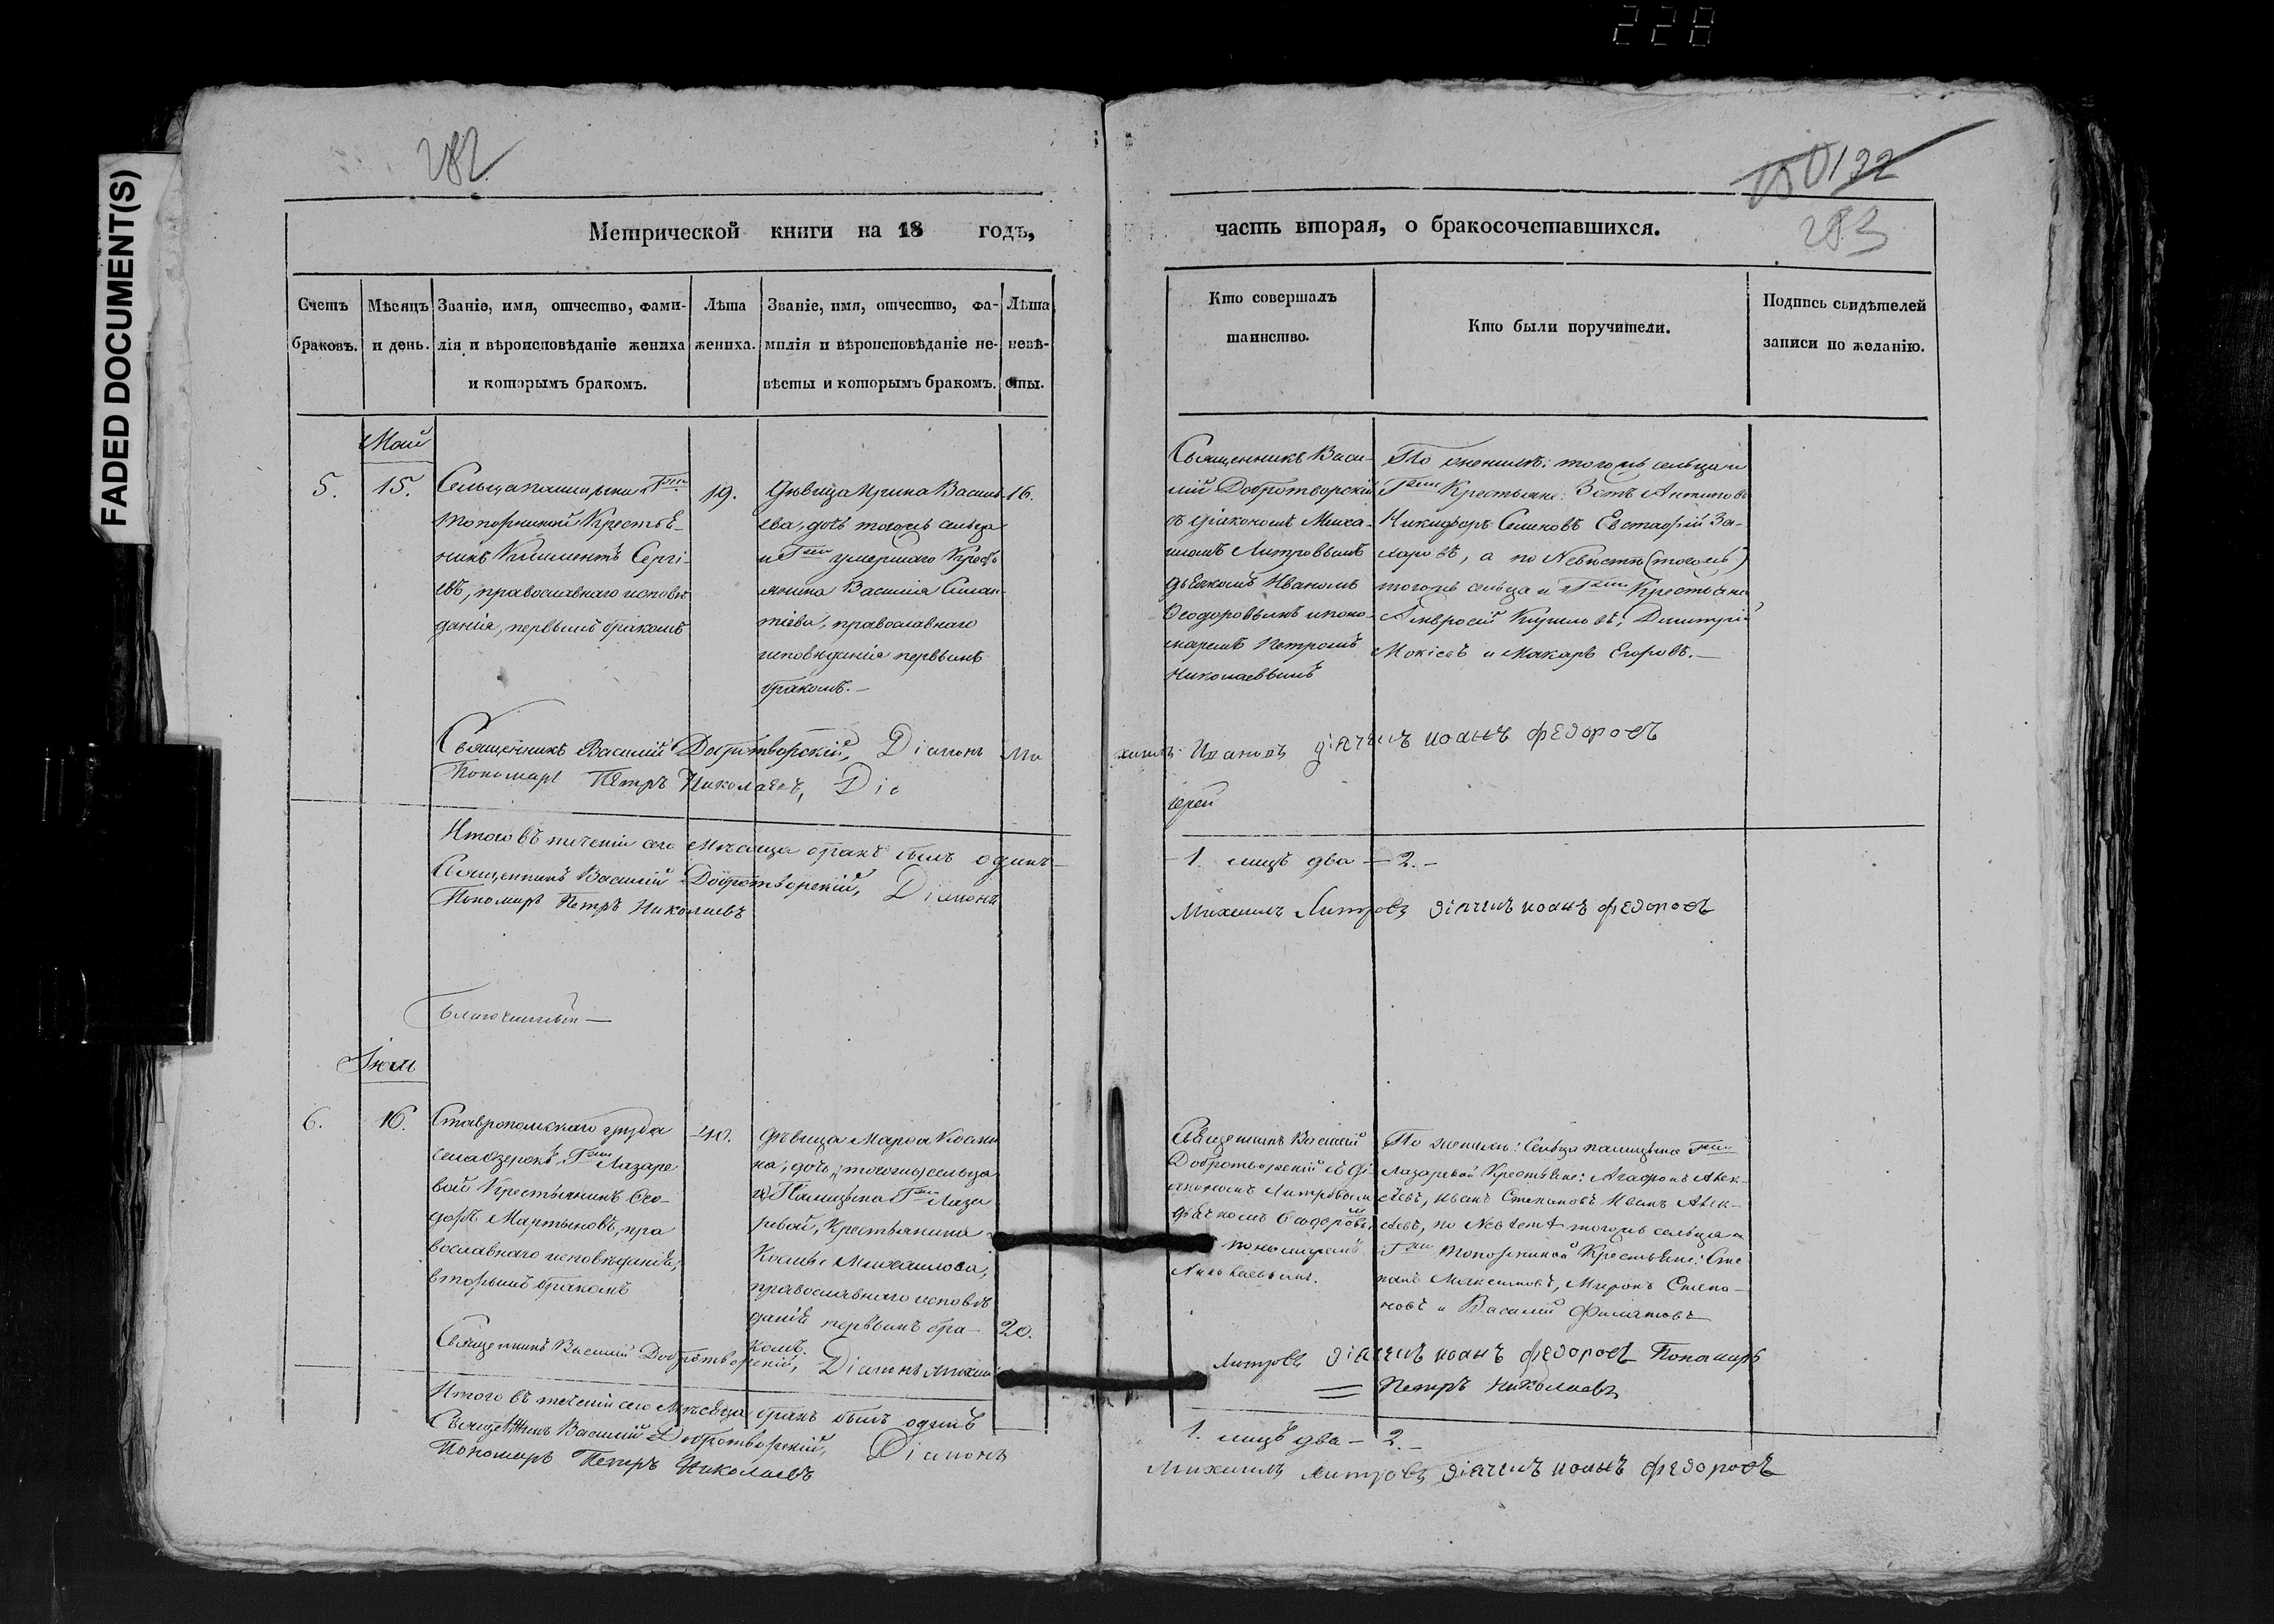 228
FADED DOCUMENT(S)
282
192
283
Метрической книги на 18 годъ,
часть вторая, о бракосочетавшихся.
Счетъ браковъ.
Мѣсяцъ и день.
Званіе, имя, отчество, фами-
лія и вѣроисповѣданіе жениха
и которымъ бракомъ.
Лѣта
жениха.
Званіе, имя, отчество, фа-
милія и вѣроисповѣданіе не-
вѣсты и которымъ бракомъ.
Лѣта
невѣ-
сты.
Кто совершалъ
таинство.
Кто были поручители.
Подпись свидѣтелей
записи по желанію.
Май
5.
15.
Сельца Паницына Гжи
Топорниной Крестья-
нинъ Климентъ Сергі-
евъ, православнаго исповѣ
данія, первымъ бракомъ
19.
Дѣвица Ирина Василь
ева, дочь тогожъ сельца
и Гжи умершаго Кресть
янина Василія
православнаго
исповѣданія первымъ
бракомъ.—
16.
Священникъ Васи-
лій Добротворскій
съ діакономъ Миха-
иломъ Дмитровымъ
дьячкомъ Иваномъ
Ѳеодоровымъ и поно-
маремъ Петромъ
Николаевымъ
По женихѣ: тогожъ сельца и
Гжи Крестьяне: Антиповъ
Никифоръ Семновъ Евстафій За-
харовъ, а по Невѣстѣ (тогожъ)
тогожъ сельца и Гжи Крестьяне
Амвросій Кириловъ, Дмитрій
Мокіевъ и Макаръ Егоровъ.—
Священникъ Василій Добротворскій, Діаконъ Ми
Пономарь Петръ Николаевъ, Діа
діячекъ иоанъ федоровъ
Итого въ теченіи сего Мѣсяца бракъ былъ одинъ—
Священникъ Василій Добротворскій, Діаконъ
Пономарь Петръ Николаевъ
— 1. лицъ два — 2. —
Михаилъ Дмитровъ діячекъ иоанъ федоровъ
Благочинный —
Іюль
6.
16.
Ставропольскаго уѣзда
села Озерокъ, Гжи Лазаре
вой Крестьянинъ Ѳео-
доръ Мартыновъ, пра
вославнаго исповѣданія,
вторымъ бракомъ
40.
Дѣвица Марѳа Косми
на, дочь, (тогожъ) сельца
Паницына Гжи Лаза
ревой, Крестьянина
Космы Михаилова,
православнаго исповѣ
данія первымъ бра-
комъ.
20.
Священникъ Василій
Добротворскій съ ді
акономъ Дмитровымъ
дьячкомъ Ѳеодоровы
пономаремъ
Николаевымъ.
По женихѣ: Сельца Паницына Гжи
Лазаревой Крестьяне: Агафонъ Алек-
сѣевъ, Иванъ Степановъ Иванъ Алек-
сѣевъ, по Невѣстѣ тогожъ сельца и
Гжи Топорниной Крестьяне: Сте
панъ Максимовъ, Миронъ Степа-
новъ и Василій Филатовъ
Священникъ Василій Добротворскій, Діаконъ Михаилъ
Дмитровъ діячекъ иоанъ федоровъ Понамарь
Петръ Николаевъ
Итого въ теченіи сего Мѣсяца бракъ былъ одинъ
Священникъ Василій Добротворскій, Діаконъ
Пономарь Петръ Николаевъ
1. лицъ два — 2. —
Михаилъ Дмитровъ діячекъ иоанъ федоровъ